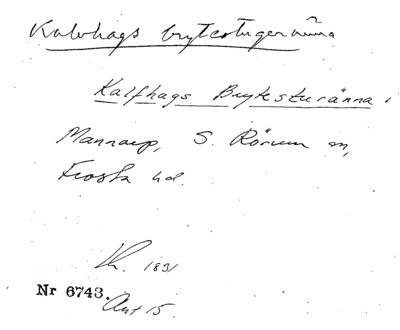 Kalvhags brytestugeränna
Kalfhags Brytesturänna i
Mannarp, S. Rörum sn,
Frosta hd.
1831
Nr 6743.
Akt 15.